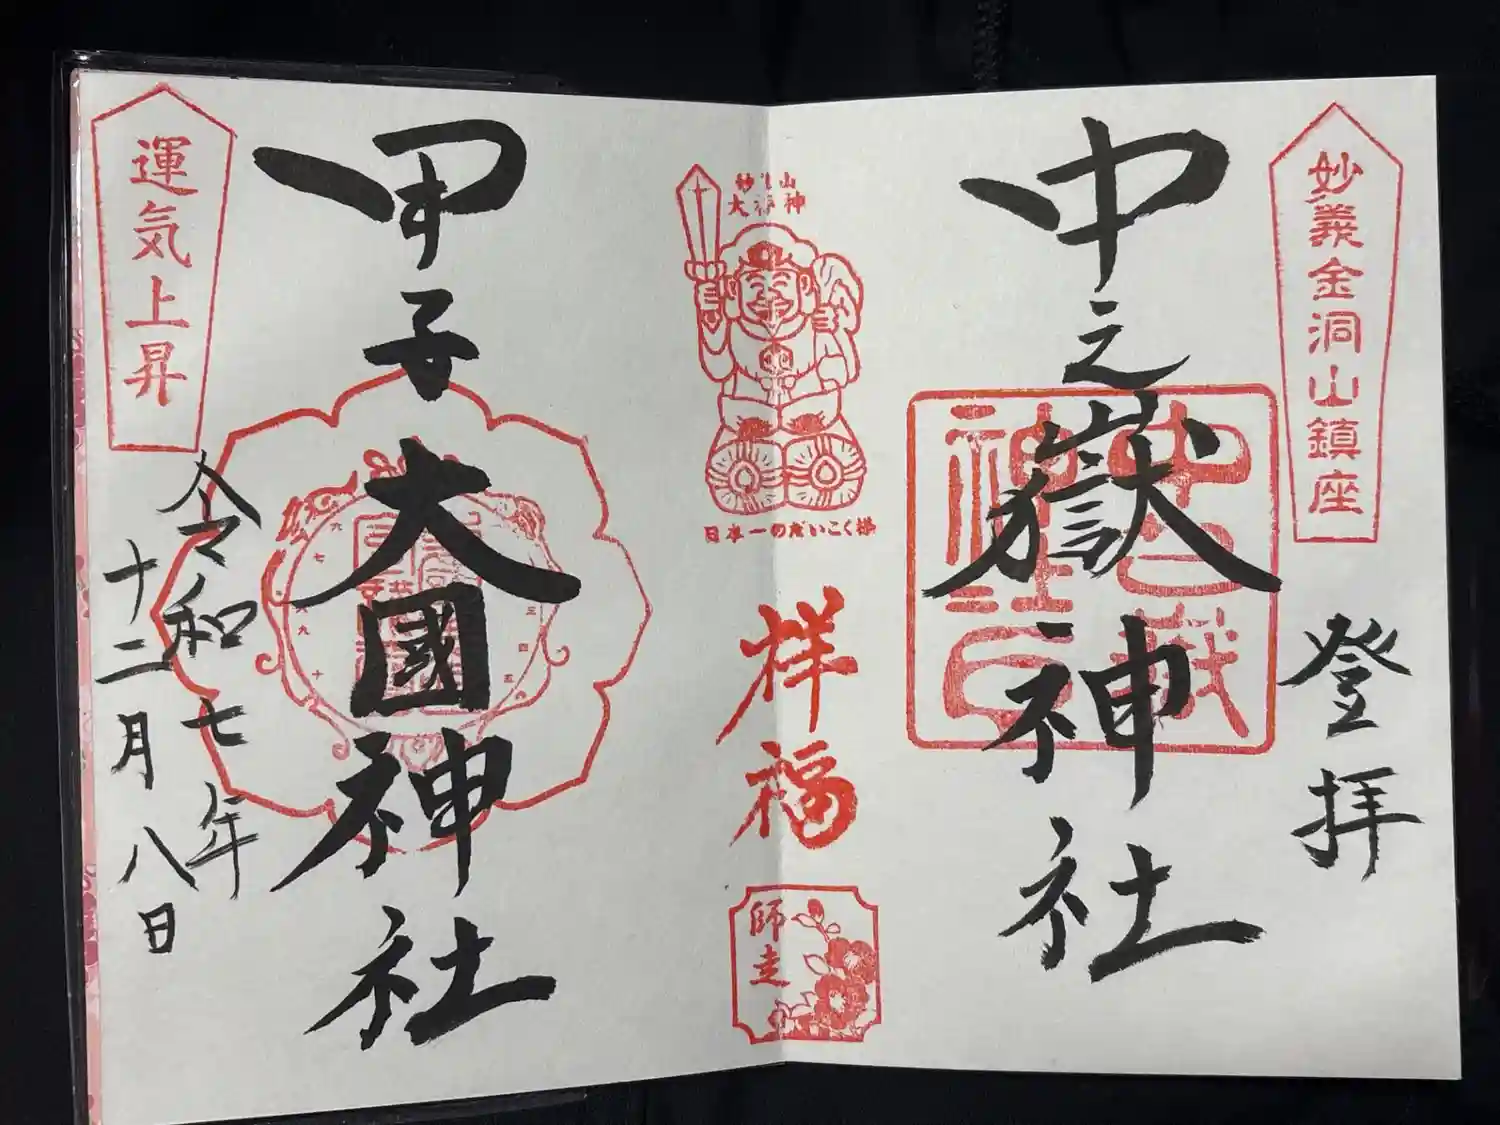 妙義金洞山鎮座
登拝
中之嶽神社
中之嶽
神社
大
神
日本一のだいこく様
祥福
師走
甲子大國神社
運気上昇
令和七年
十二月八日